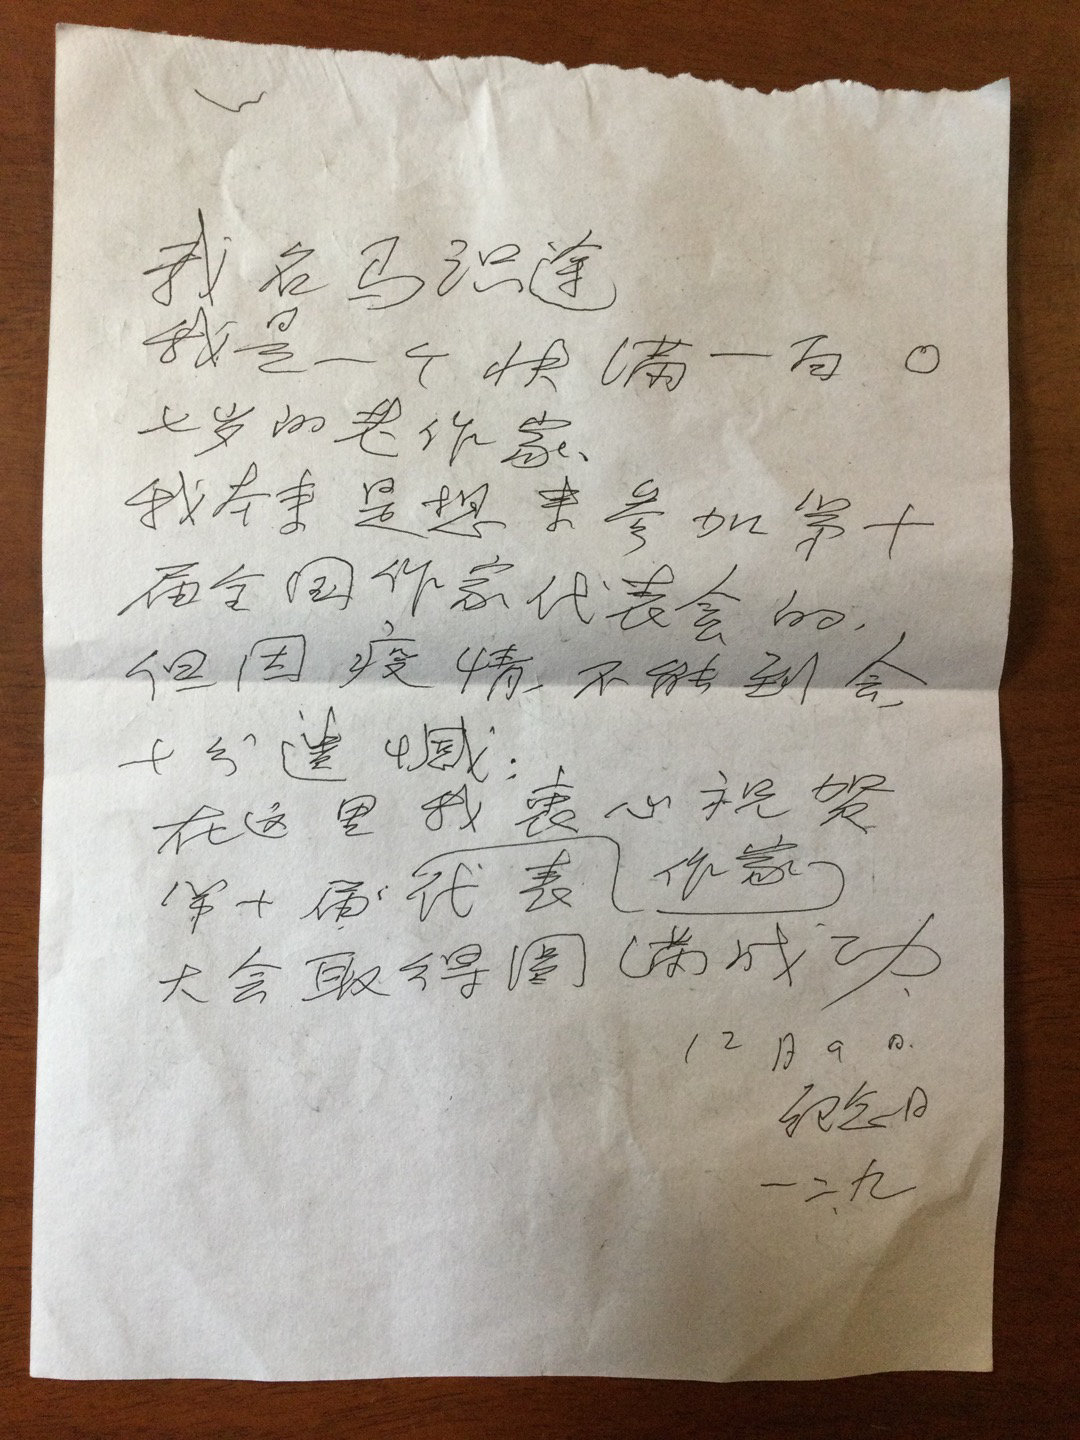 我名马识途
我是一个快满一百〇
七岁的老作家、
我本来是想来参加第十
届全国作家代表会的,
但因疫情,不能到会,
十分遗憾;
在这里我衷心祝贺
第十届代表作家
大会取得圆满成功、
12月9日.
纪念日
一二、九